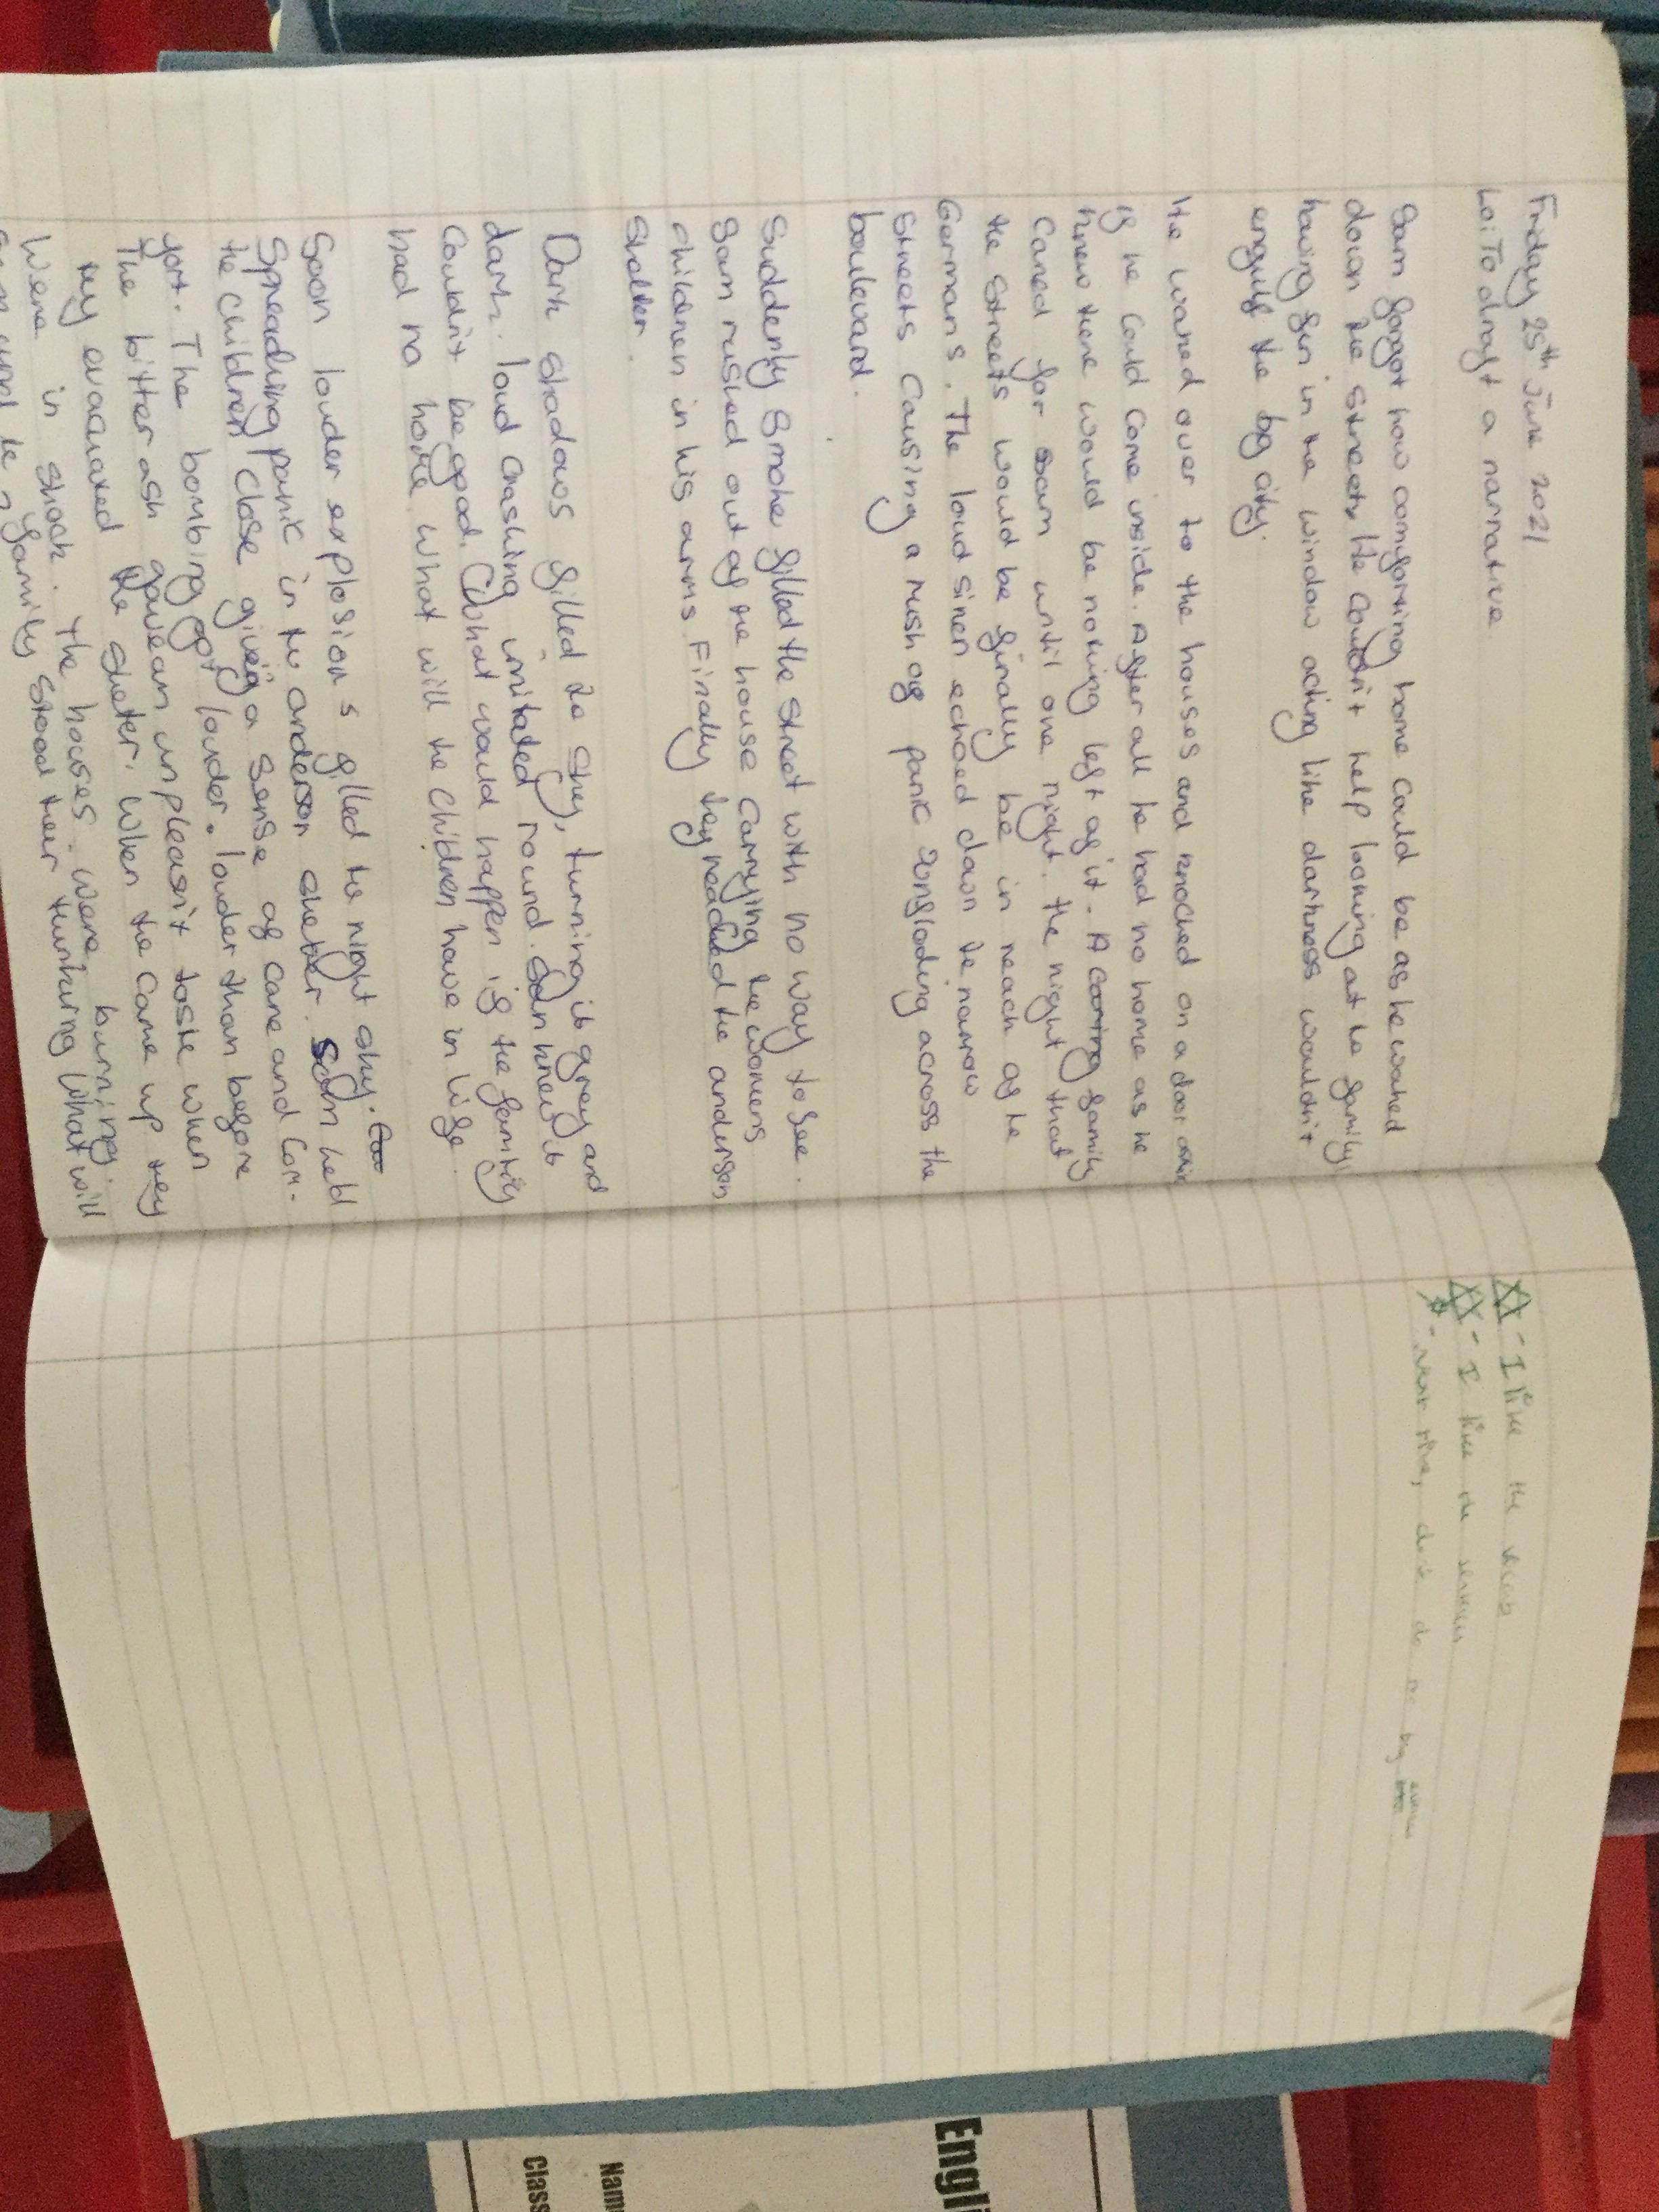 Friday 25th June 2021
Lo: To draft a narrative
Sam forgot how comforting home could be as he walked
down the street. He couldn't help looking at he family
having fun in the window acting like darkness wouldn't
engulf the big city.
He walked over to the houses and knocked on a door
if he could come inside. After all he had no home as he
knew there would be nothing left of it. A caring family
cared for sam until one night. the night that
the streets would be finally be in reach of he
Germans. The loud siren echoed down he narrow
streets causing a rush of panic across the
boulevard.
Suddenly smoke filled the street with no way to see.
Sam rushed out of the house carrying he womens
children in his arms. Finally they reached the anderson
shelter.
Dark shadows filled he sky, turning it grey and
dark. loud crashing imitated round. Sam knew it
couldn't be good. What would happen if the family
had no home. What will the children have in life.
Soon louder explosions filled the night sky.
Spreading panic in the anderson shelter. Sam held
the children close giving a sense of care and com-
fort. The bombing got louder. louder than before
The bitter ash gave an unpleasn't taste when
they evacuated the shelter. When the came up they
were in shock. The houses were burning.
family stood their thinking what will
☆ - I like the vocab
☆ - I like the
Engli
Nam
Class